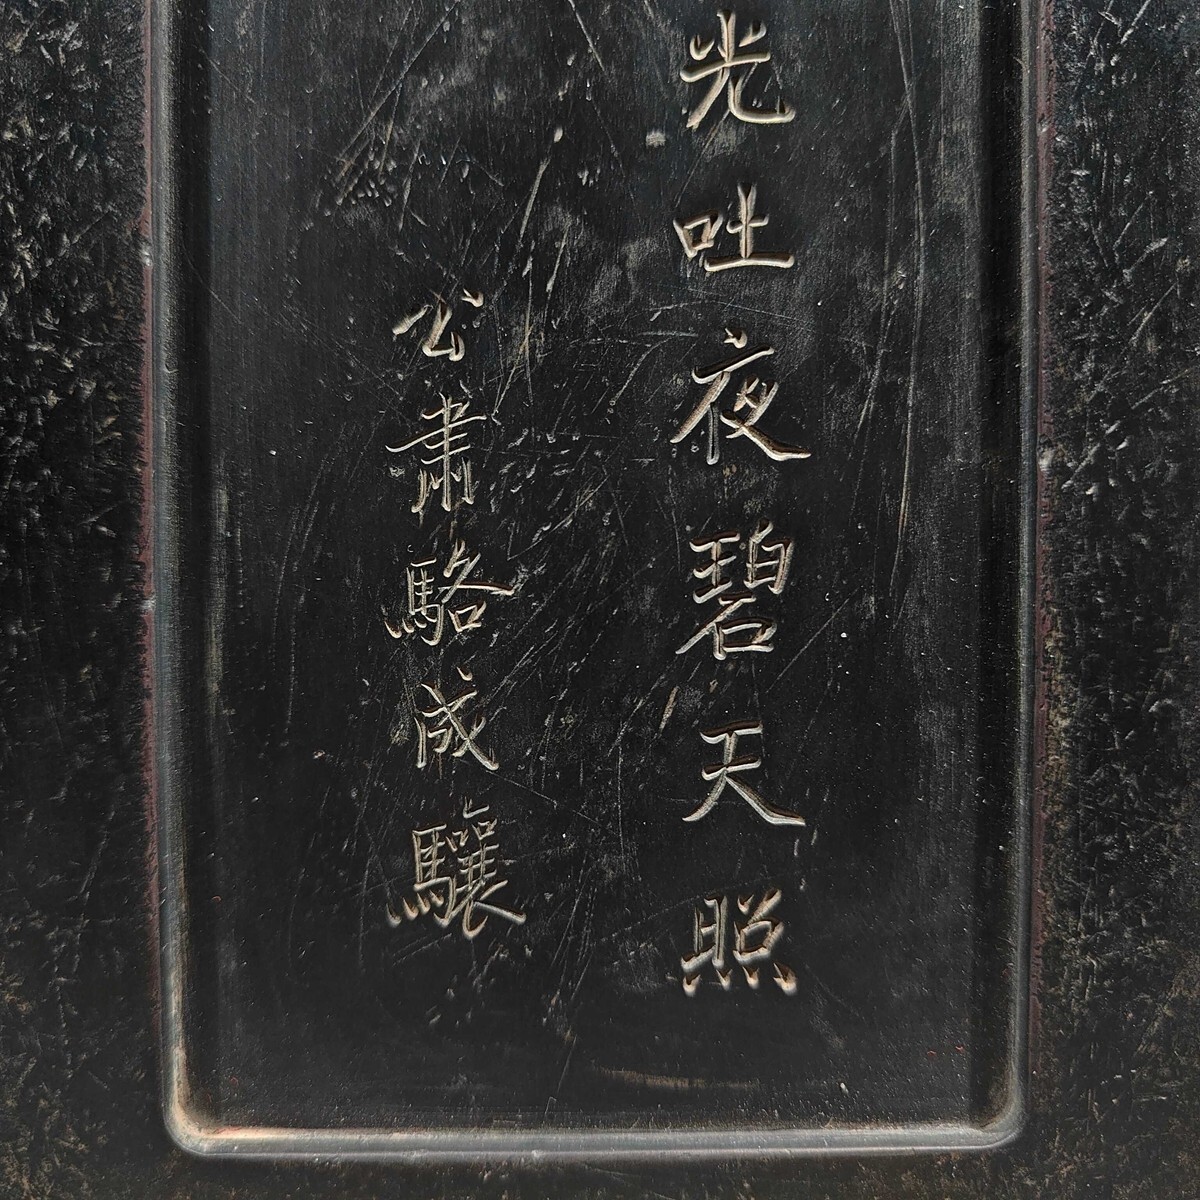 光吐夜碧天照
公肅駱成驤